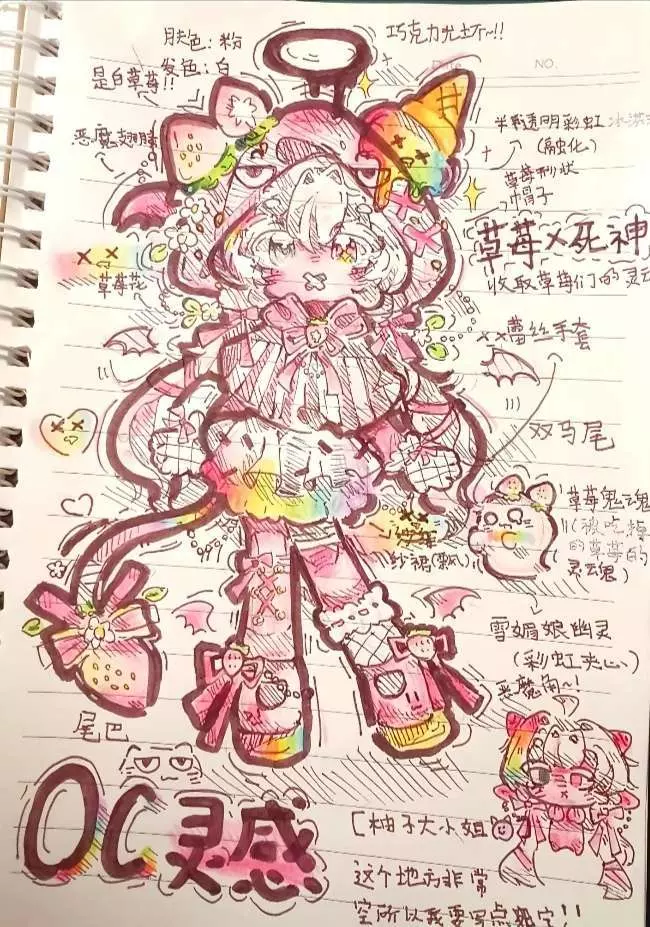 肤色:粉
发色:白
是白草莓!!
巧克力光环~!!
NO.
恶魔翅膀
半透明彩虹冰淇
(融化)
草莓形状
巾帽子
草莓×死神
收取草莓们的灵
草莓花
蕾丝手套
双马尾
草莓鬼魂
(被吃掉
的草莓的
灵魂)
纱裙(飘)
雪媚娘幽灵
(彩虹夹心)
恶魔角~!
尾巴
OC灵感
[柚子大小姐
这个地方非常
空所以我要写点